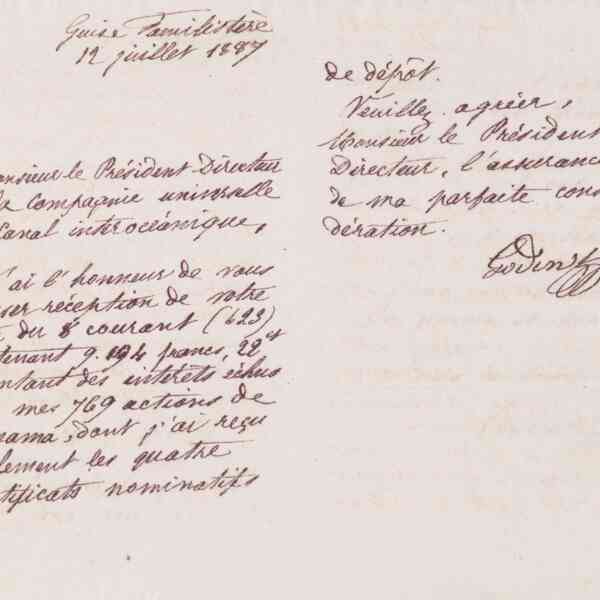 Guise Familistère
12 juillet 1887
onsieur le Président Directeur
la Compagnie universelle
Canal interocéanique,
'ai l'honneur de vous
ser réception de votre
du 8 courant (623)
tenant 9.194 francs, 22 ct
ontant des intérêts échus
mes 769 actions de
nama, dont j'ai reçu
lement les quatre
tificats nominatifs
de dépôt.
Veuillez agréer,
Monsieur le Président
Directeur, l'assurance
de ma parfaite consi
dération.
Godin